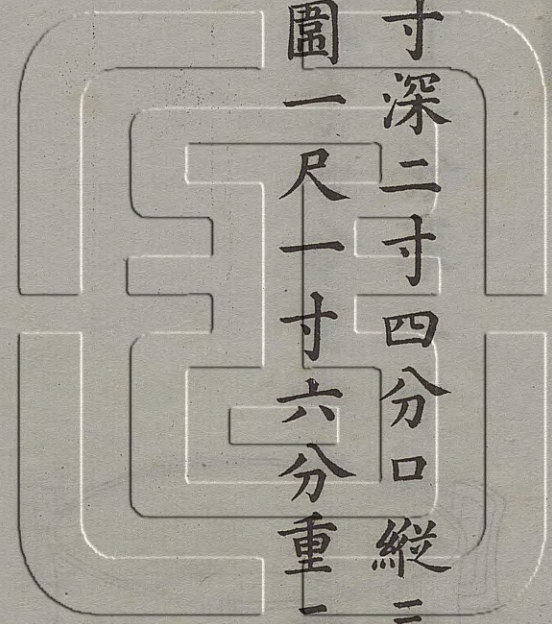 寸深二寸四分口縱
圍一尺一寸六分重